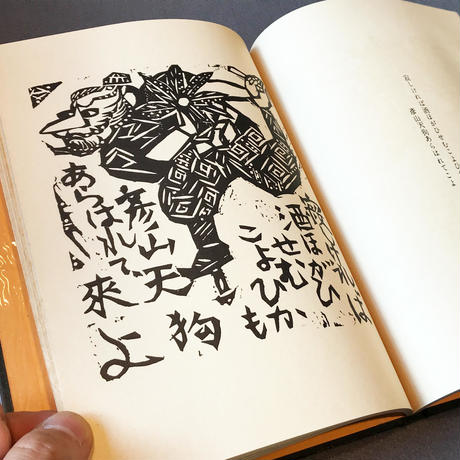 寂しければ
酒ほがひ
せむ
こよひかも
彦山天狗
あらはれて
來よ
寂しければ酒ほがひせむこよひ
彦山天狗あらはれてこよ